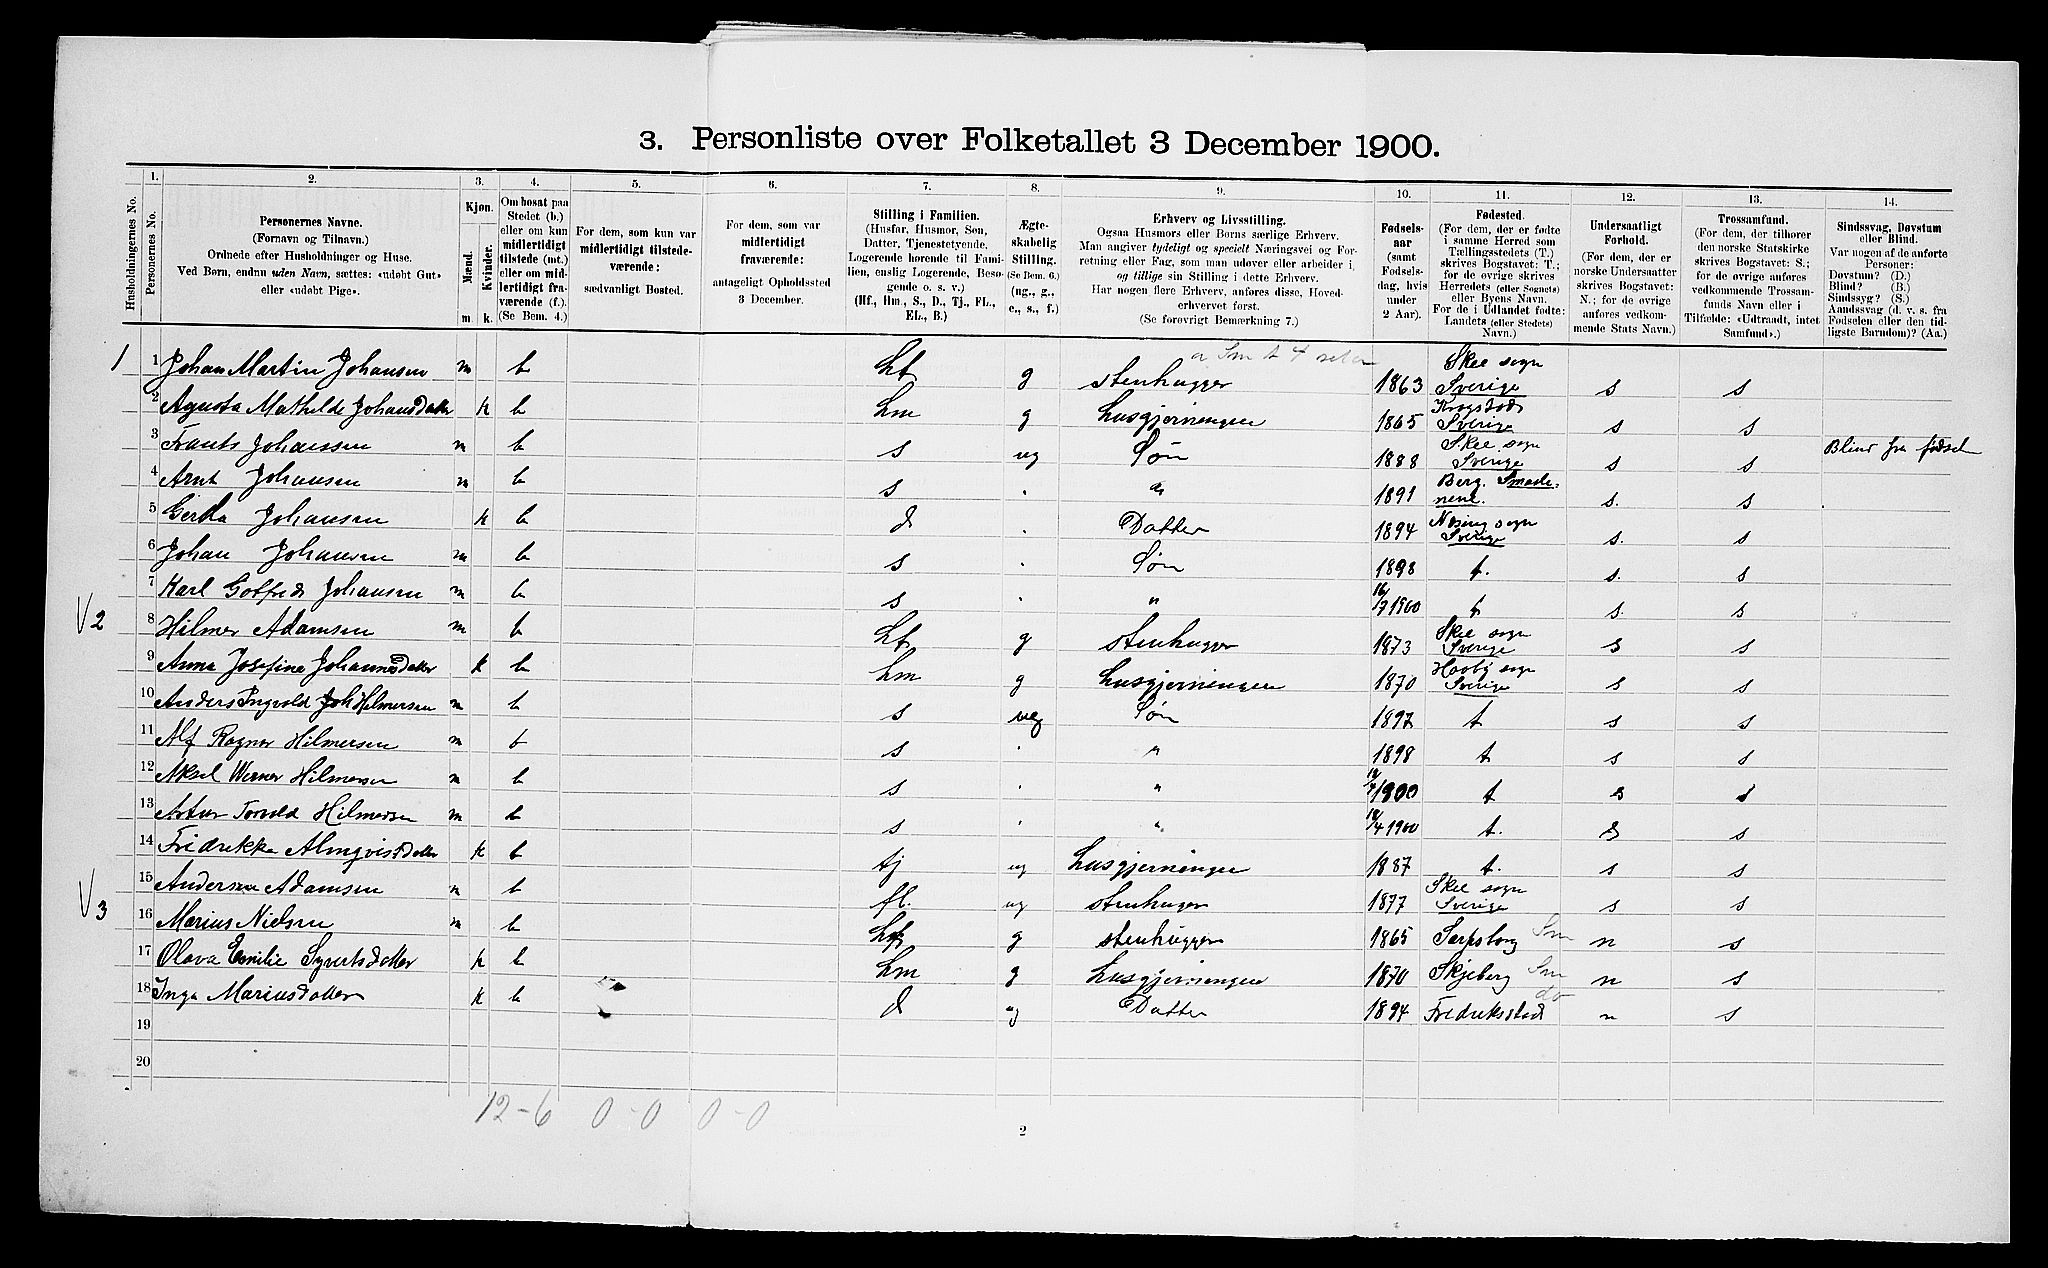 3. Personliste over Folketallet 3 December 1900.
Husholdningernes No.
1. Personernes No.
2. Personernes Navne. (Fornavn og Tilnavn.) Ordnede efter Husholdninger og Huse. Ved Børn, endnu uden Navn, sættes: «udøbt Gut» eller «udøbt Pige».
3. Kjøn. Mænd. m. Kvinder. k.
4. Om bosat paa Stedet (b.) eller om kun midlertidigt tilstede (mt.) eller om midlertidigt fraværende (f.). (Se Bem. 4.)
5. For dem, som kun var midlertidigt tilstedeværende: sædvanligt Bosted.
6. For dem, som var midlertidigt fraværende: antageligt Opholdssted 3 December.
7. Stilling i Familien. (Husfar, Husmor, Søn, Datter, Tjenestetyende, Logerende hørende til Familien, enslig Logerende, Besøgende o. s. v.) (Hf., Hm., S., D., Tj., FL., EL., B.)
8. Ægteskabelig Stilling. (Se Bem. 6.) (ug., g., e., s., f.)
9. Erhverv og Livsstilling. Ogsaa Husmors eller Børns særlige Erhverv. Man angiver tydeligt og specielt Næringsvei og Forretning eller Fag, som man udøver eller arbeider i, og tillige sin Stilling i dette Erhverv. Har nogen flere Erhverv, anføres disse, Hovederhvervet først. (Se forøvrigt Bemærkning 7.)
10. Fødselsaar (samt Fødselsdag, hvis under 2 Aar).
11. Fødested. (For dem, der er fødte i samme Herred som Tællingsstedets (T.) skrives Bogstavet: T.; for de øvrige skrives Herredets (eller Sognets) eller Byens Navn. For de i Udlandet fødte: Landets (eller Stedets) Navn.)
12. Undersaatligt Forhold. (For dem, der er norske Undersaatter skrives Bogstavet: N.; for de øvrige anføres vedkommende Stats Navn.)
13. Trossamfund. (For dem, der tilhører den norske Statskirke skrives Bogstavet: S.; for de øvrige anføres vedkommende Trossamfunds Navn eller i Tilfælde: «Udtraadt, intet Samfund».)
14. Sindssvag, Døvstum eller Blind. Var nogen af de anførte Personer: Døvstum? (D.) Blind? (B.) Sindssyg? (S.) Aandssvag (d. v. s. fra Fødselen eller den tidligste Barndom)? (Aa.)
1 1 Johan Martin Johansen m b hf g stenhugger 1863 Skee sogn Sverige s s
2 Agusta Mathilde Johansdatter k b hm g husgjerningen 1865 Krogstad Sverige s s
3 Frants Johanssen m b s ug Søn 1888 Skee sogn Sverige s s Blind fra fødsel
4 Arnt Johansen m b s . " 1891 Berg. Smaalenene. s. s
5 Gerda Johansen k b d . Datter 1894 Næsing sogn Sverige s. s
6 Johan Johansen m b s . Søn 1898 t. s. s
7 Karl Gotfred Johansen m b s . " 16/7 1900 t s. s
V2 8 Hilmer Adamsen m b hf g stenhugger 1873 Skee sogn Sverige s s
9 Anna Josefine Johannesdatter k b hm g husgjerningen 1870 Hogby sogn Sverige s s
10 Anders Ingvold Hilmersen m b s ug Søn 1897 t s s
11 Alf Ragnar Hilmersen m b s . " 1898 t s s
12 Aksel Werner Hilmersen m b s . " 1900 t s s
13 Artur Torvald Hilmersen m b s . " 1900 t. s s
14 Fredrikke Almqvistdatter k b tj ug husgjerningen 1887 t. s s
15 Andersen Adamsen m b fl. ug stenhuger 1877 Skee sogn Sverige s s
V3 16 Marius Nielsen m b hf g stenhugger 1865 Sarpsborg Sm n s
17 Olava Emilie Syvertsdatter k b hm g husgjerningen 1870 Skjeberg Sm n s
18 Inga Mariusdatter k b d ug Datter 1894 Fredriksstad do n s
19
20
12-6 0-0 0-0
2